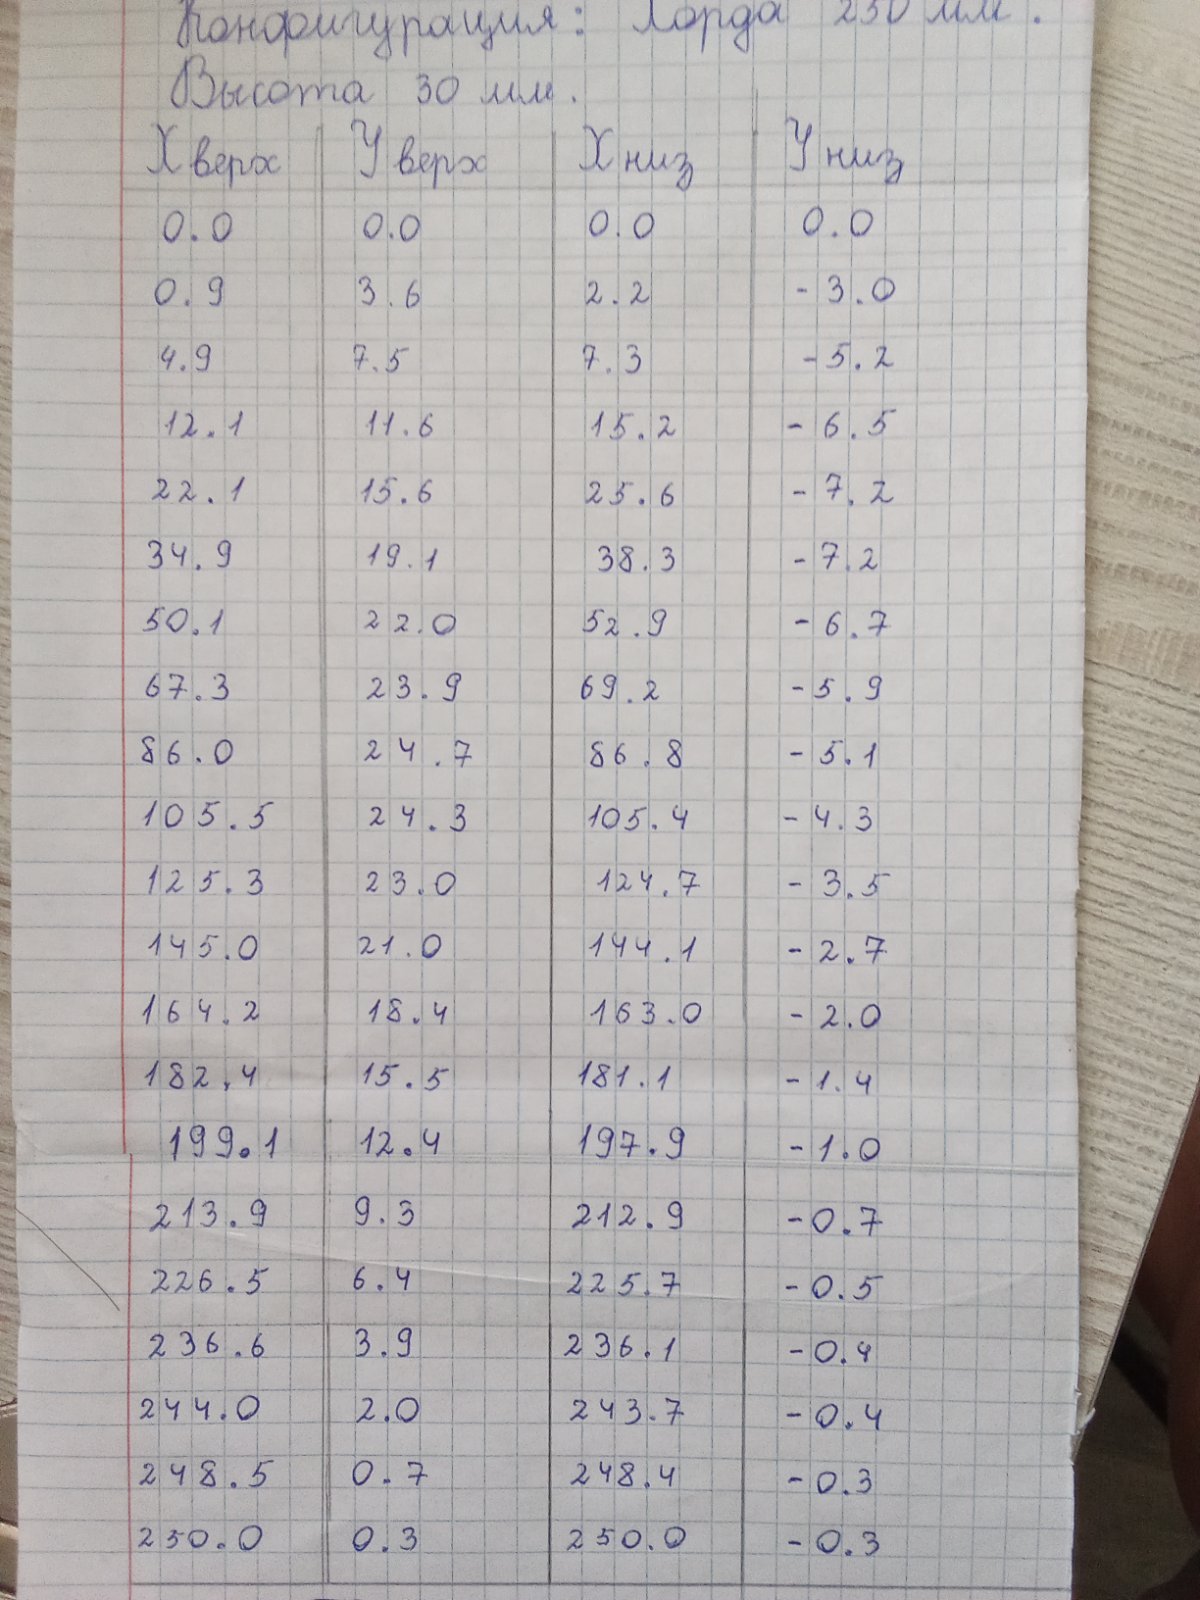 Конфигурация: Хорда 250 мм.
Высота 30 мм.
X верх У верх X низ У низ
0.0 0.0 0.0 0.0
0.9 3.6 2.2 -3.0
4.9 7.5 7.3 -5.2
12.1 11.6 15.2 -6.5
22.1 15.6 25.6 -7.2
34.9 19.1 38.3 -7.2
50.1 22.0 52.9 -6.7
67.3 23.9 69.2 -5.9
86.0 24.7 86.8 -5.1
105.5 24.3 105.4 -4.3
125.3 23.0 124.7 -3.5
145.0 21.0 144.1 -2.7
164.2 18.4 163.0 -2.0
182.4 15.5 181.1 -1.4
199.1 12.4 197.9 -1.0
213.9 9.3 212.9 -0.7
226.5 6.4 225.7 -0.5
236.6 3.9 236.1 -0.4
244.0 2.0 243.7 -0.4
248.5 0.7 248.4 -0.3
250.0 0.3 250.0 -0.3